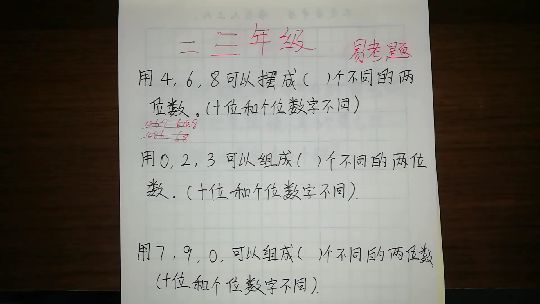 二三年级
易考题
用4,6,8可以摆成( )个不同的两
位数。(十位和个位数字不同)
用0,2,3可以组成( )个不同的两位
数.(十位和个位数字不同).
用7,9,0,可以组成( )个不同的两位数
(十位和个位数字不同).